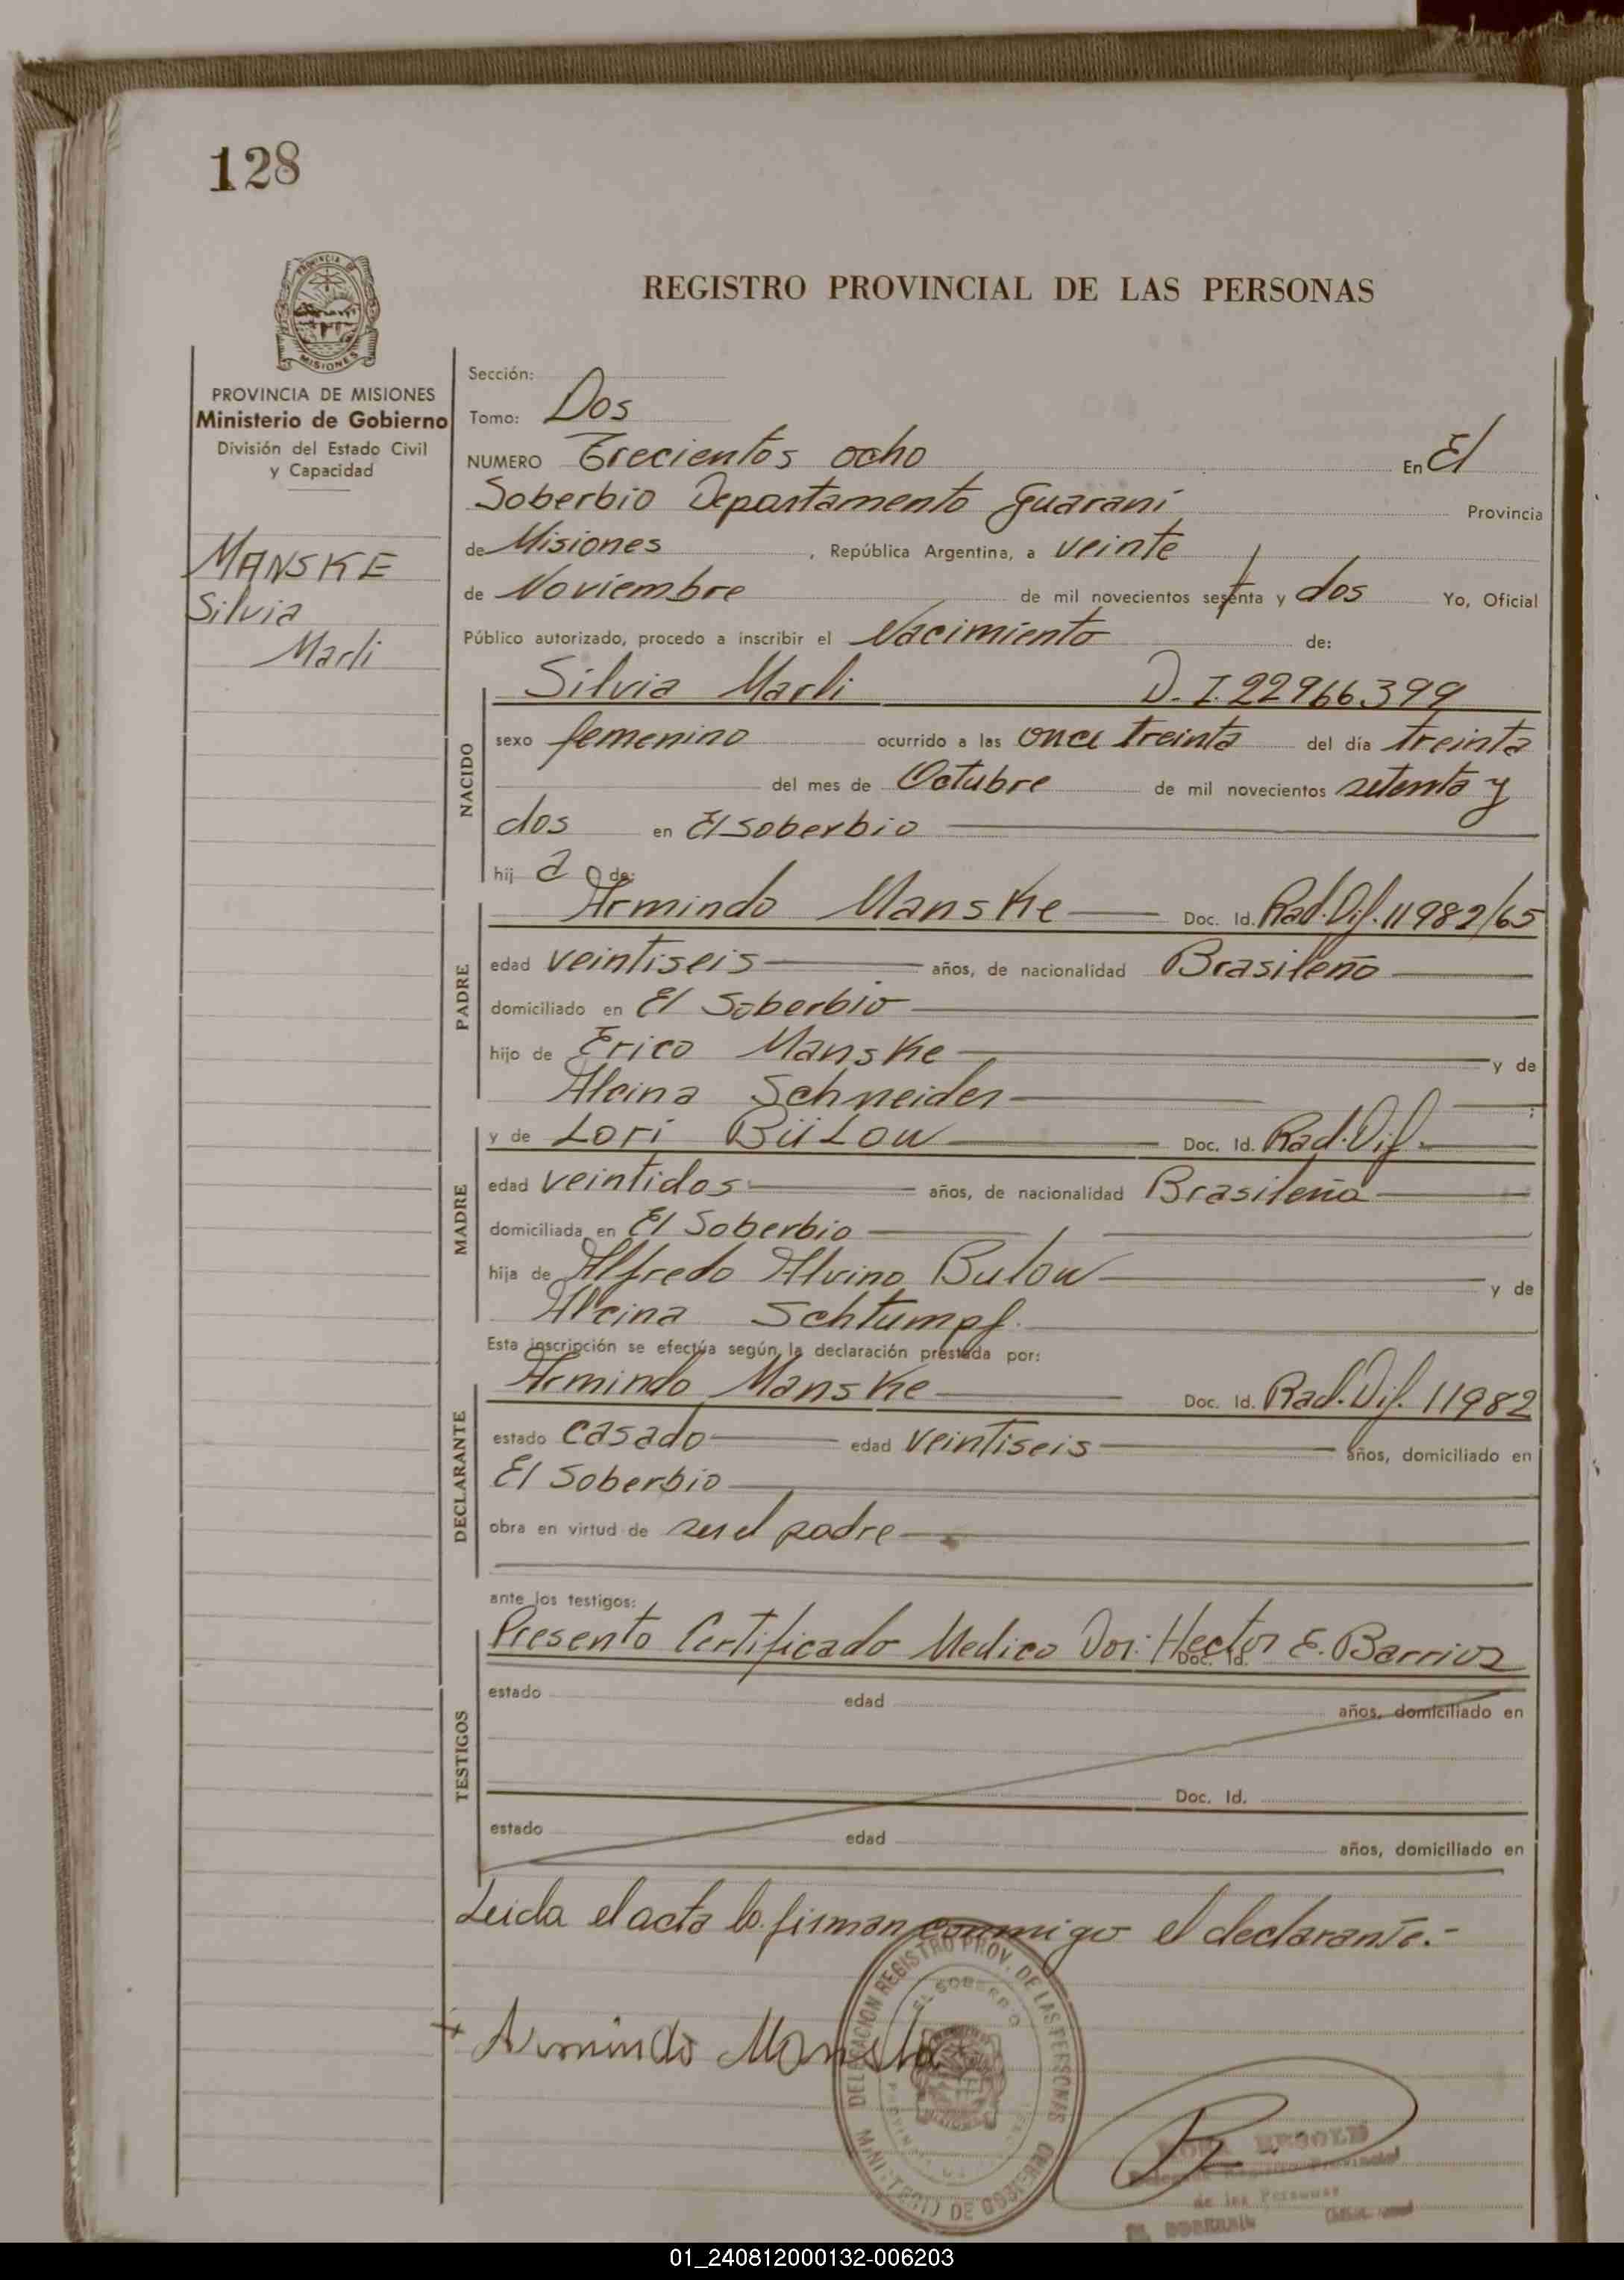 128
PROVINCIA DE
MISIONES
REGISTRO PROVINCIAL DE LAS PERSONAS
PROVINCIA DE MISIONES
Ministerio de Gobierno
División del Estado Civil
y Capacidad
MANSKE
Silvia
Marli
Sección:
Tomo: Dos
NUMERO Trecientos ocho En El
Soberbio Departamento Guarani Provincia
de Misiones , República Argentina, a veinte
de Noviembre de mil novecientos setenta y dos Yo, Oficial
Público autorizado, procedo a inscribir el Nacimiento de:
NACIDO
Silvia Marli D. I. 22966399
sexo femenino ocurrido a las once treinta del día treinta
del mes de Octubre de mil novecientos setenta y
dos en El Soberbio
hij a de:
PADRE
Armindo Manske Doc. Id. Rad. Dif. 11982/65
edad veintiseis años, de nacionalidad Brasileño
domiciliado en El Soberbio
hijo de Erico Manske y de
Alcina Schneider
MADRE
y de Lori Bülow Doc. Id. Rad. Dif.
edad veintidos años, de nacionalidad Brasileña
domiciliada en El Soberbio
hija de Alfredo Alvino Bulow y de
Alcina Schtumpf.
Esta inscripción se efectúa según la declaración prestada por:
DECLARANTE
Armindo Manske Doc. Id. Rad. Dif. 11982
estado casado edad veintiseis años, domiciliado en
El Soberbio
obra en virtud de ser el padre
ante los testigos:
TESTIGOS
Presento Certificado Medico Dor: Hector E. Barrios
Doc. Id.
estado edad años, domiciliado en
Doc. Id.
estado edad años, domiciliado en
Leida el acta la firman conmigo el declarante.-
Armindo Manske
DELEGACION REGISTRO PROV. DE LAS PERSONAS
EL SOBERBIO
MINISTERIO DE GOBIERNO
Registro Provincial
de las Personas
01_240812000132-006203